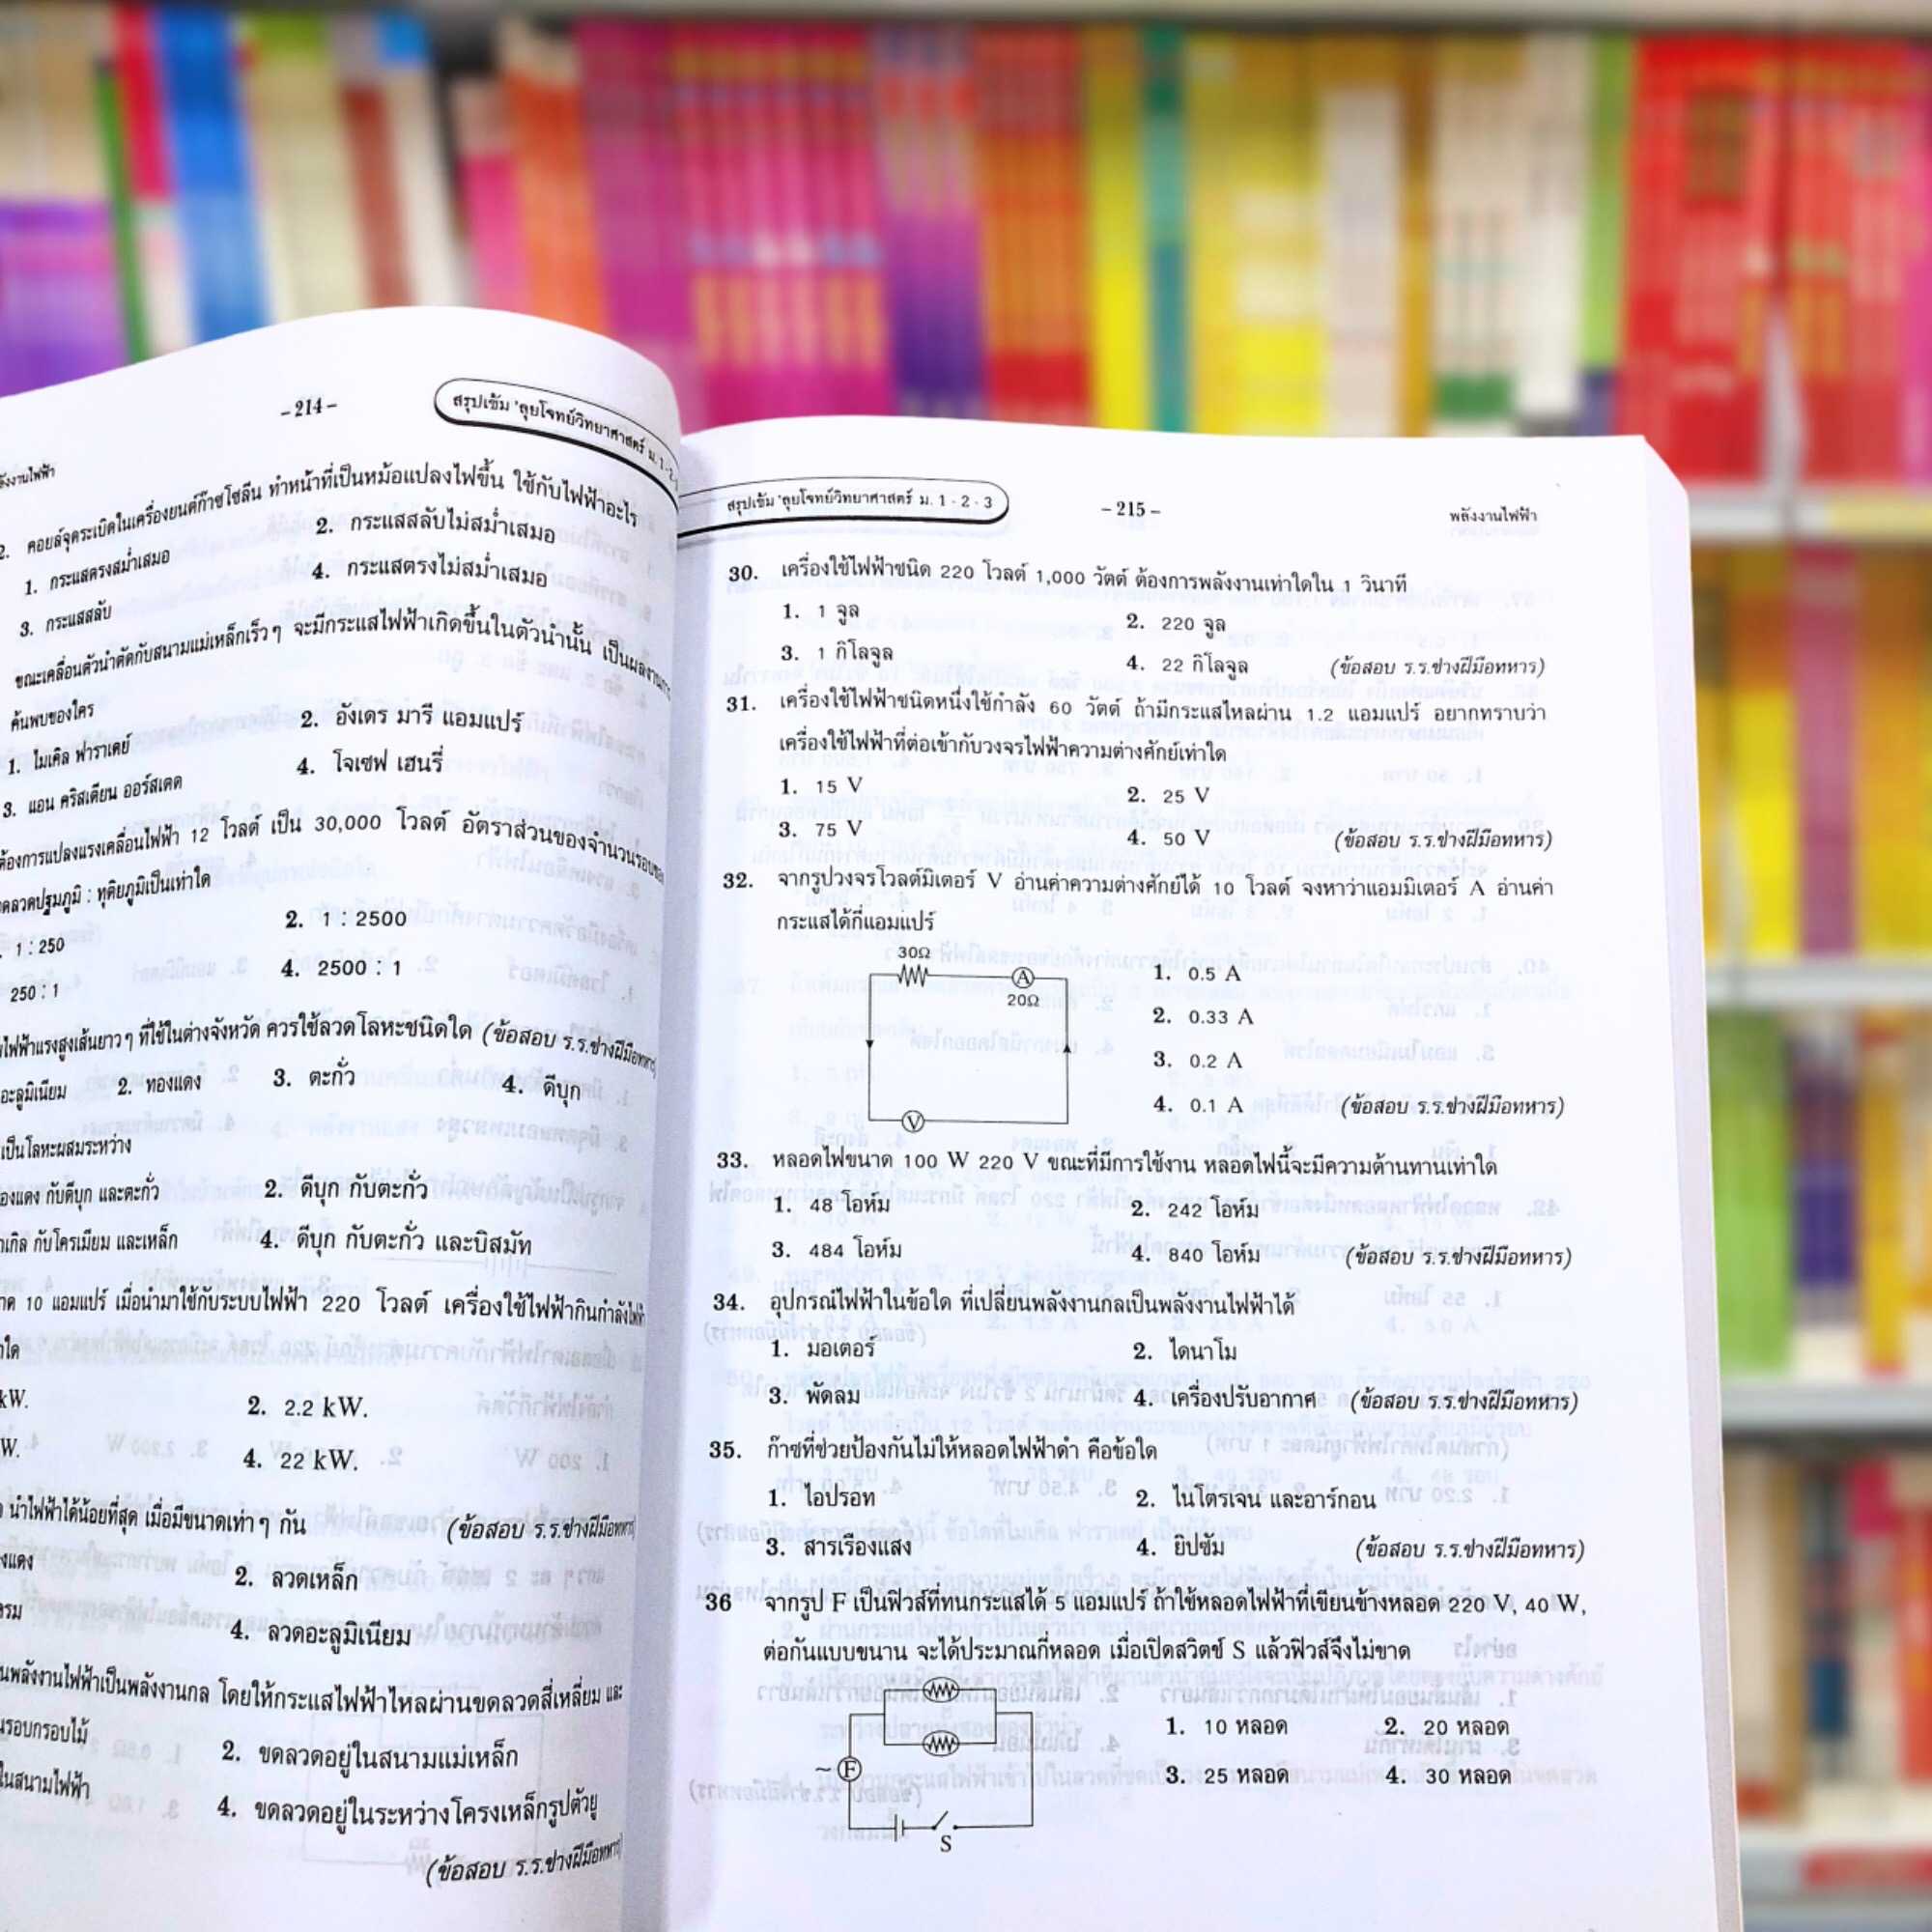 –214–
สรุปเข้ม 'ลุยโจทย์วิทยาศาสตร์ ม. 1-2
คอยล์จุดระเบิดในเครื่องยนต์ก๊าซโซลีน ทำหน้าที่เป็นหม้อแปลงไฟขึ้น ใช้กับไฟฟ้าอะไร
1. กระแสตรงสม่ำเสมอ 2. กระแสสลับไม่สม่ำเสมอ
3. กระแสสลับ 4. กระแสตรงไม่สม่ำเสมอ
ขณะเคลื่อนตัวนำตัดกับสนามแม่เหล็กเร็วๆ จะมีกระแสไฟฟ้าเกิดขึ้นในตัวนำนั้น เป็นผลงาน
ค้นพบของใคร
1. ไมเคิล ฟาราเดย์ 2. อังเดร มารี แอมแปร์
3. แอน คริสเตียน ออร์สเตด 4. โจเซฟ เฮนรี่
ต้องการแปลงแรงเคลื่อนไฟฟ้า 12 โวลต์ เป็น 30,000 โวลต์ อัตราส่วนของจำนวนรอบของ
ขดลวดปฐมภูมิ : ทุติยภูมิเป็นเท่าใด
1 : 250 2. 1 : 2500
250 : 1 4. 2500 : 1
ไฟฟ้าแรงสูงเส้นยาวๆ ที่ใช้ในต่างจังหวัด ควรใช้ลวดโลหะชนิดใด (ข้อสอบ ร.ร.ช่างฝีมือทหาร)
อะลูมิเนียม 2. ทองแดง 3. ตะกั่ว 4. ดีบุก
เป็นโลหะผสมระหว่าง
กับดีบุก และตะกั่ว 2. ดีบุก กับตะกั่ว
กับโครเมียม และเหล็ก 4. ดีบุก กับตะกั่ว และบิสมัท
10 แอมแปร์ เมื่อนำมาใช้กับระบบไฟฟ้า 220 โวลต์ เครื่องใช้ไฟฟ้ากินกำลังไฟฟ้า
kW. 2. 2.2 kW.
W. 4. 22 kW.
นำไฟฟ้าได้น้อยที่สุด เมื่อมีขนาดเท่าๆ กัน (ข้อสอบ ร.ร.ช่างฝีมือทหาร)
2. ลวดเหล็ก
4. ลวดอะลูมิเนียม
พลังงานไฟฟ้าเป็นพลังงานกล โดยให้กระแสไฟฟ้าไหลผ่านขดลวดสี่เหลี่ยม และ
รอบกรอบไม้ 2. ขดลวดอยู่ในสนามแม่เหล็ก
ในสนามไฟฟ้า 4. ขดลวดอยู่ในระหว่างโครงเหล็กรูปตัวยู
(ข้อสอบ ร.ร.ช่างฝีมือทหาร)
สรุปเข้ม 'ลุยโจทย์วิทยาศาสตร์ ม. 1 - 2 - 3 –215– พลังงานไฟฟ้า
30. เครื่องใช้ไฟฟ้าชนิด 220 โวลต์ 1,000 วัตต์ ต้องการพลังงานเท่าใดใน 1 วินาที
1. 1 จูล 2. 220 จูล
3. 1 กิโลจูล 4. 22 กิโลจูล (ข้อสอบ ร.ร.ช่างฝีมือทหาร)
31. เครื่องใช้ไฟฟ้าชนิดหนึ่งใช้กำลัง 60 วัตต์ ถ้ามีกระแสไหลผ่าน 1.2 แอมแปร์ อยากทราบว่า
เครื่องใช้ไฟฟ้าที่ต่อเข้ากับวงจรไฟฟ้าความต่างศักย์เท่าใด
1. 15 V 2. 25 V
3. 75 V 4. 50 V (ข้อสอบ ร.ร.ช่างฝีมือทหาร)
32. จากรูปวงจรโวลต์มิเตอร์ V อ่านค่าความต่างศักย์ได้ 10 โวลต์ จงหาว่าแอมมิเตอร์ A อ่านค่า
กระแสได้กี่แอมแปร์
30Ω
A
20Ω
V
1. 0.5 A
2. 0.33 A
3. 0.2 A
4. 0.1 A (ข้อสอบ ร.ร.ช่างฝีมือทหาร)
33. หลอดไฟขนาด 100 W 220 V ขณะที่มีการใช้งาน หลอดไฟนี้จะมีความต้านทานเท่าใด
1. 48 โอห์ม 2. 242 โอห์ม
3. 484 โอห์ม 4. 840 โอห์ม (ข้อสอบ ร.ร.ช่างฝีมือทหาร)
34. อุปกรณ์ไฟฟ้าในข้อใด ที่เปลี่ยนพลังงานกลเป็นพลังงานไฟฟ้าได้
1. มอเตอร์ 2. ไดนาโม
3. พัดลม 4. เครื่องปรับอากาศ (ข้อสอบ ร.ร.ช่างฝีมือทหาร)
35. ก๊าซที่ช่วยป้องกันไม่ให้หลอดไฟฟ้าดำ คือข้อใด
1. ไอปรอท 2. ไนโตรเจน และอาร์กอน
3. สารเรืองแสง 4. ยิปซัม (ข้อสอบ ร.ร.ช่างฝีมือทหาร)
36 จากรูป F เป็นฟิวส์ที่ทนกระแสได้ 5 แอมแปร์ ถ้าใช้หลอดไฟฟ้าที่เขียนข้างหลอด 220 V, 40 W,
ต่อกันแบบขนาน จะได้ประมาณกี่หลอด เมื่อเปิดสวิตช์ S แล้วฟิวส์จึงไม่ขาด
~ F
S
1. 10 หลอด 2. 20 หลอด
3. 25 หลอด 4. 30 หลอด